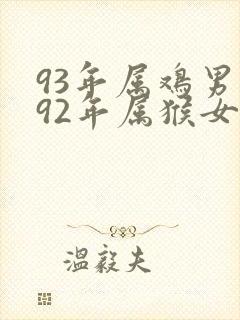 93年属鸡男
92年属猴女
温毅夫